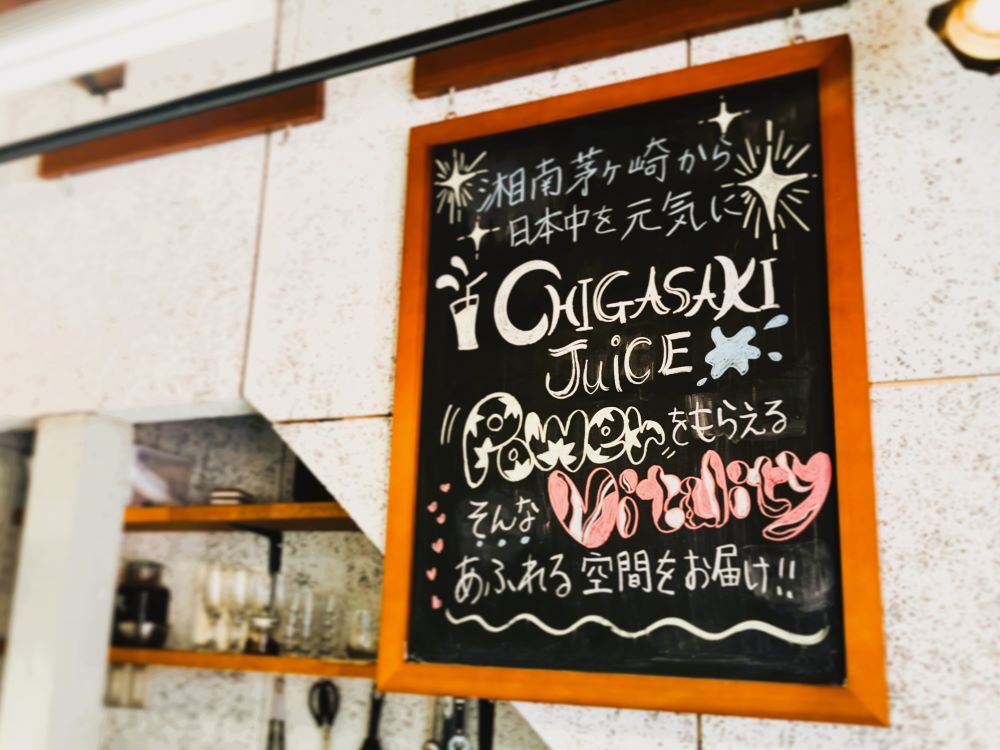 湘南茅ヶ崎から
日本中を元気に
CHIGASAKI
JuiCE
Powerをもらえる
そんなVitality
あふれる空間をお届け!!